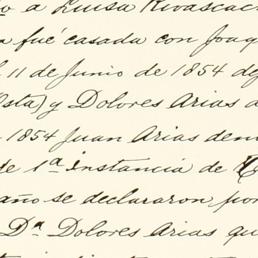 o a Luisa Rivascac
a fué casada con Joaq
l 11 de Junio de 1854 de
sta) y Dolores Arias d
1854 Juan Arias dem
de 1ª Instancia de
año se declararon por
Dª Dolores Arias qu